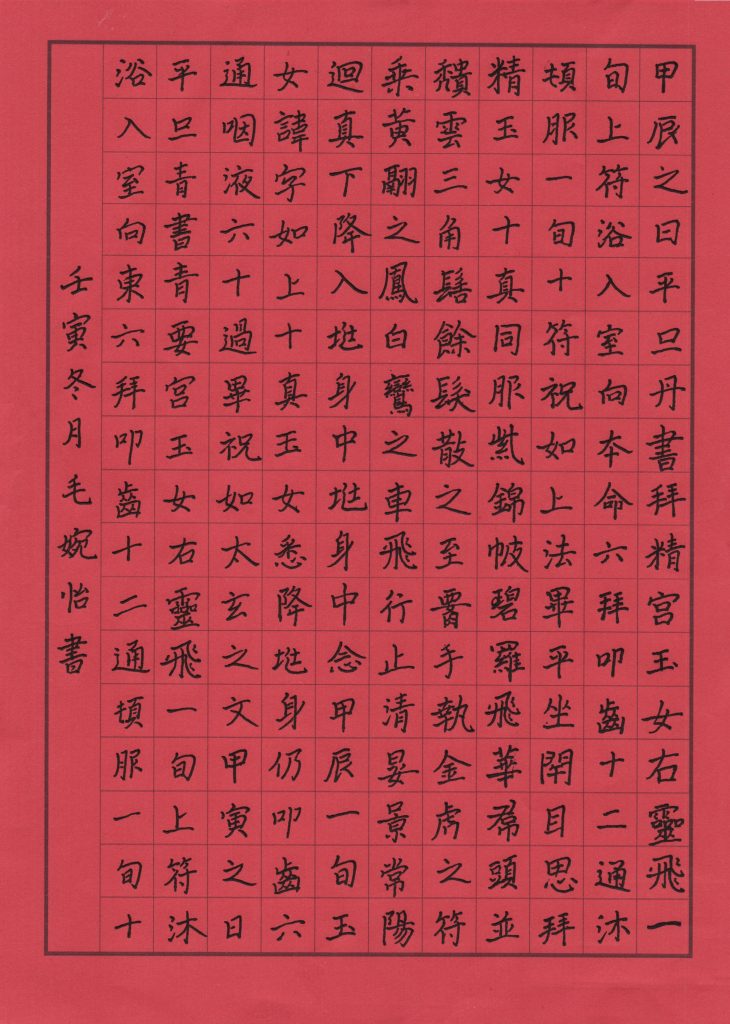 甲辰之日平旦丹書拜精宮玉女右靈飛一
旬上符浴入室向本命六拜叩齒十二通沐
頓服一旬十符祝如上法畢平坐閇目思拜
精玉女十真同服紫錦帔碧羅飛華帬頭並
頽雲三角髻餘髮散之至署手執金虎之符
乘黃翮之鳳白鸞之車飛行上清晏景常陽
迴真下降入𡉏身中𡉏身中念甲辰一旬玉
女諱字如上十真玉女悉降𡉏身仍叩齒六
通咽液六十過畢祝如太玄之文甲寅之日
平旦青書青要宮玉女右靈飛一旬上符沐
浴入室向東六拜叩齒十二通頓服一旬十
壬寅冬月毛婉怡書